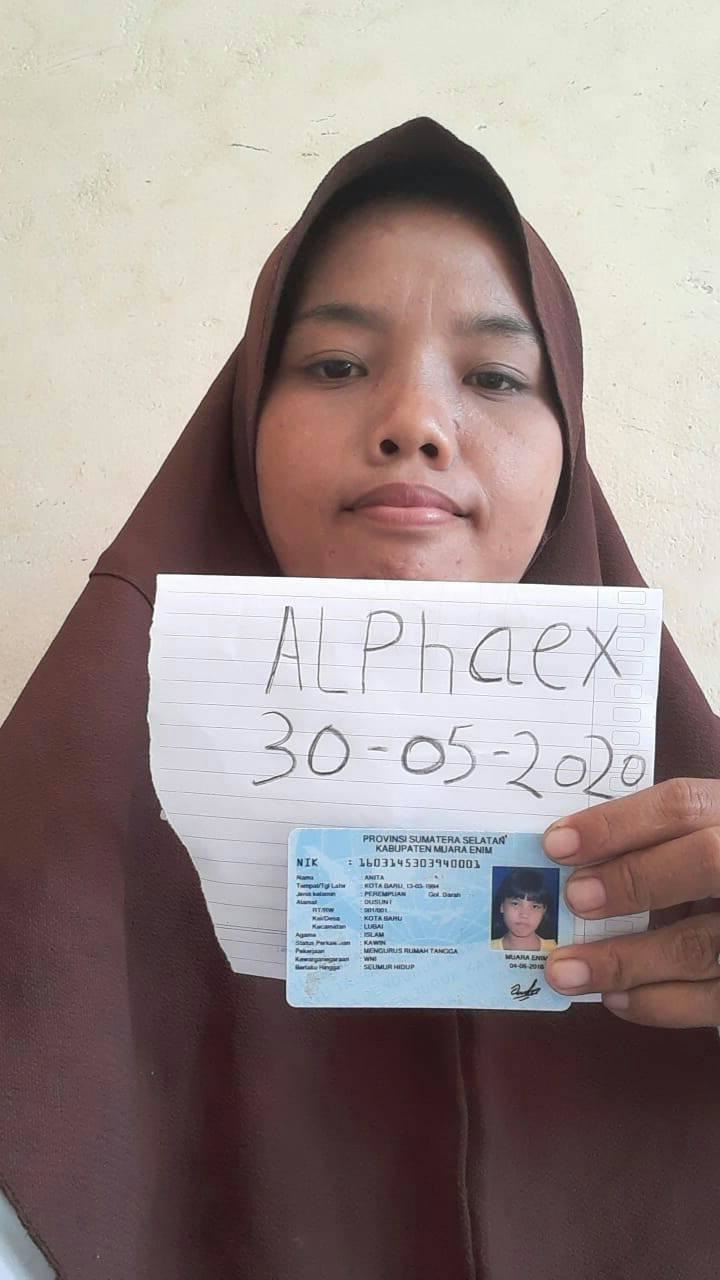 ALPhaex
30-05-2020
PROVINSI SUMATERA SELATAN
KABUPATEN MUARA ENIM
NIK : 1603145303940001
Nama : ANITA
Tempat/Tgl Lahir : KOTA BARU, 13-03-1994
Jenis kelamin : PEREMPUAN Gol. Darah
Alamat : DUSUN I
RT/RW : 001/001
Kel/Desa : KOTA BARU
Kecamatan : LUBAI
Agama : ISLAM
Status Perkawinan : KAWIN
Pekerjaan : MENGURUS RUMAH TANGGA
Kewarganegaraan : WNI
Berlaku Hingga : SEUMUR HIDUP
MUARA ENIM